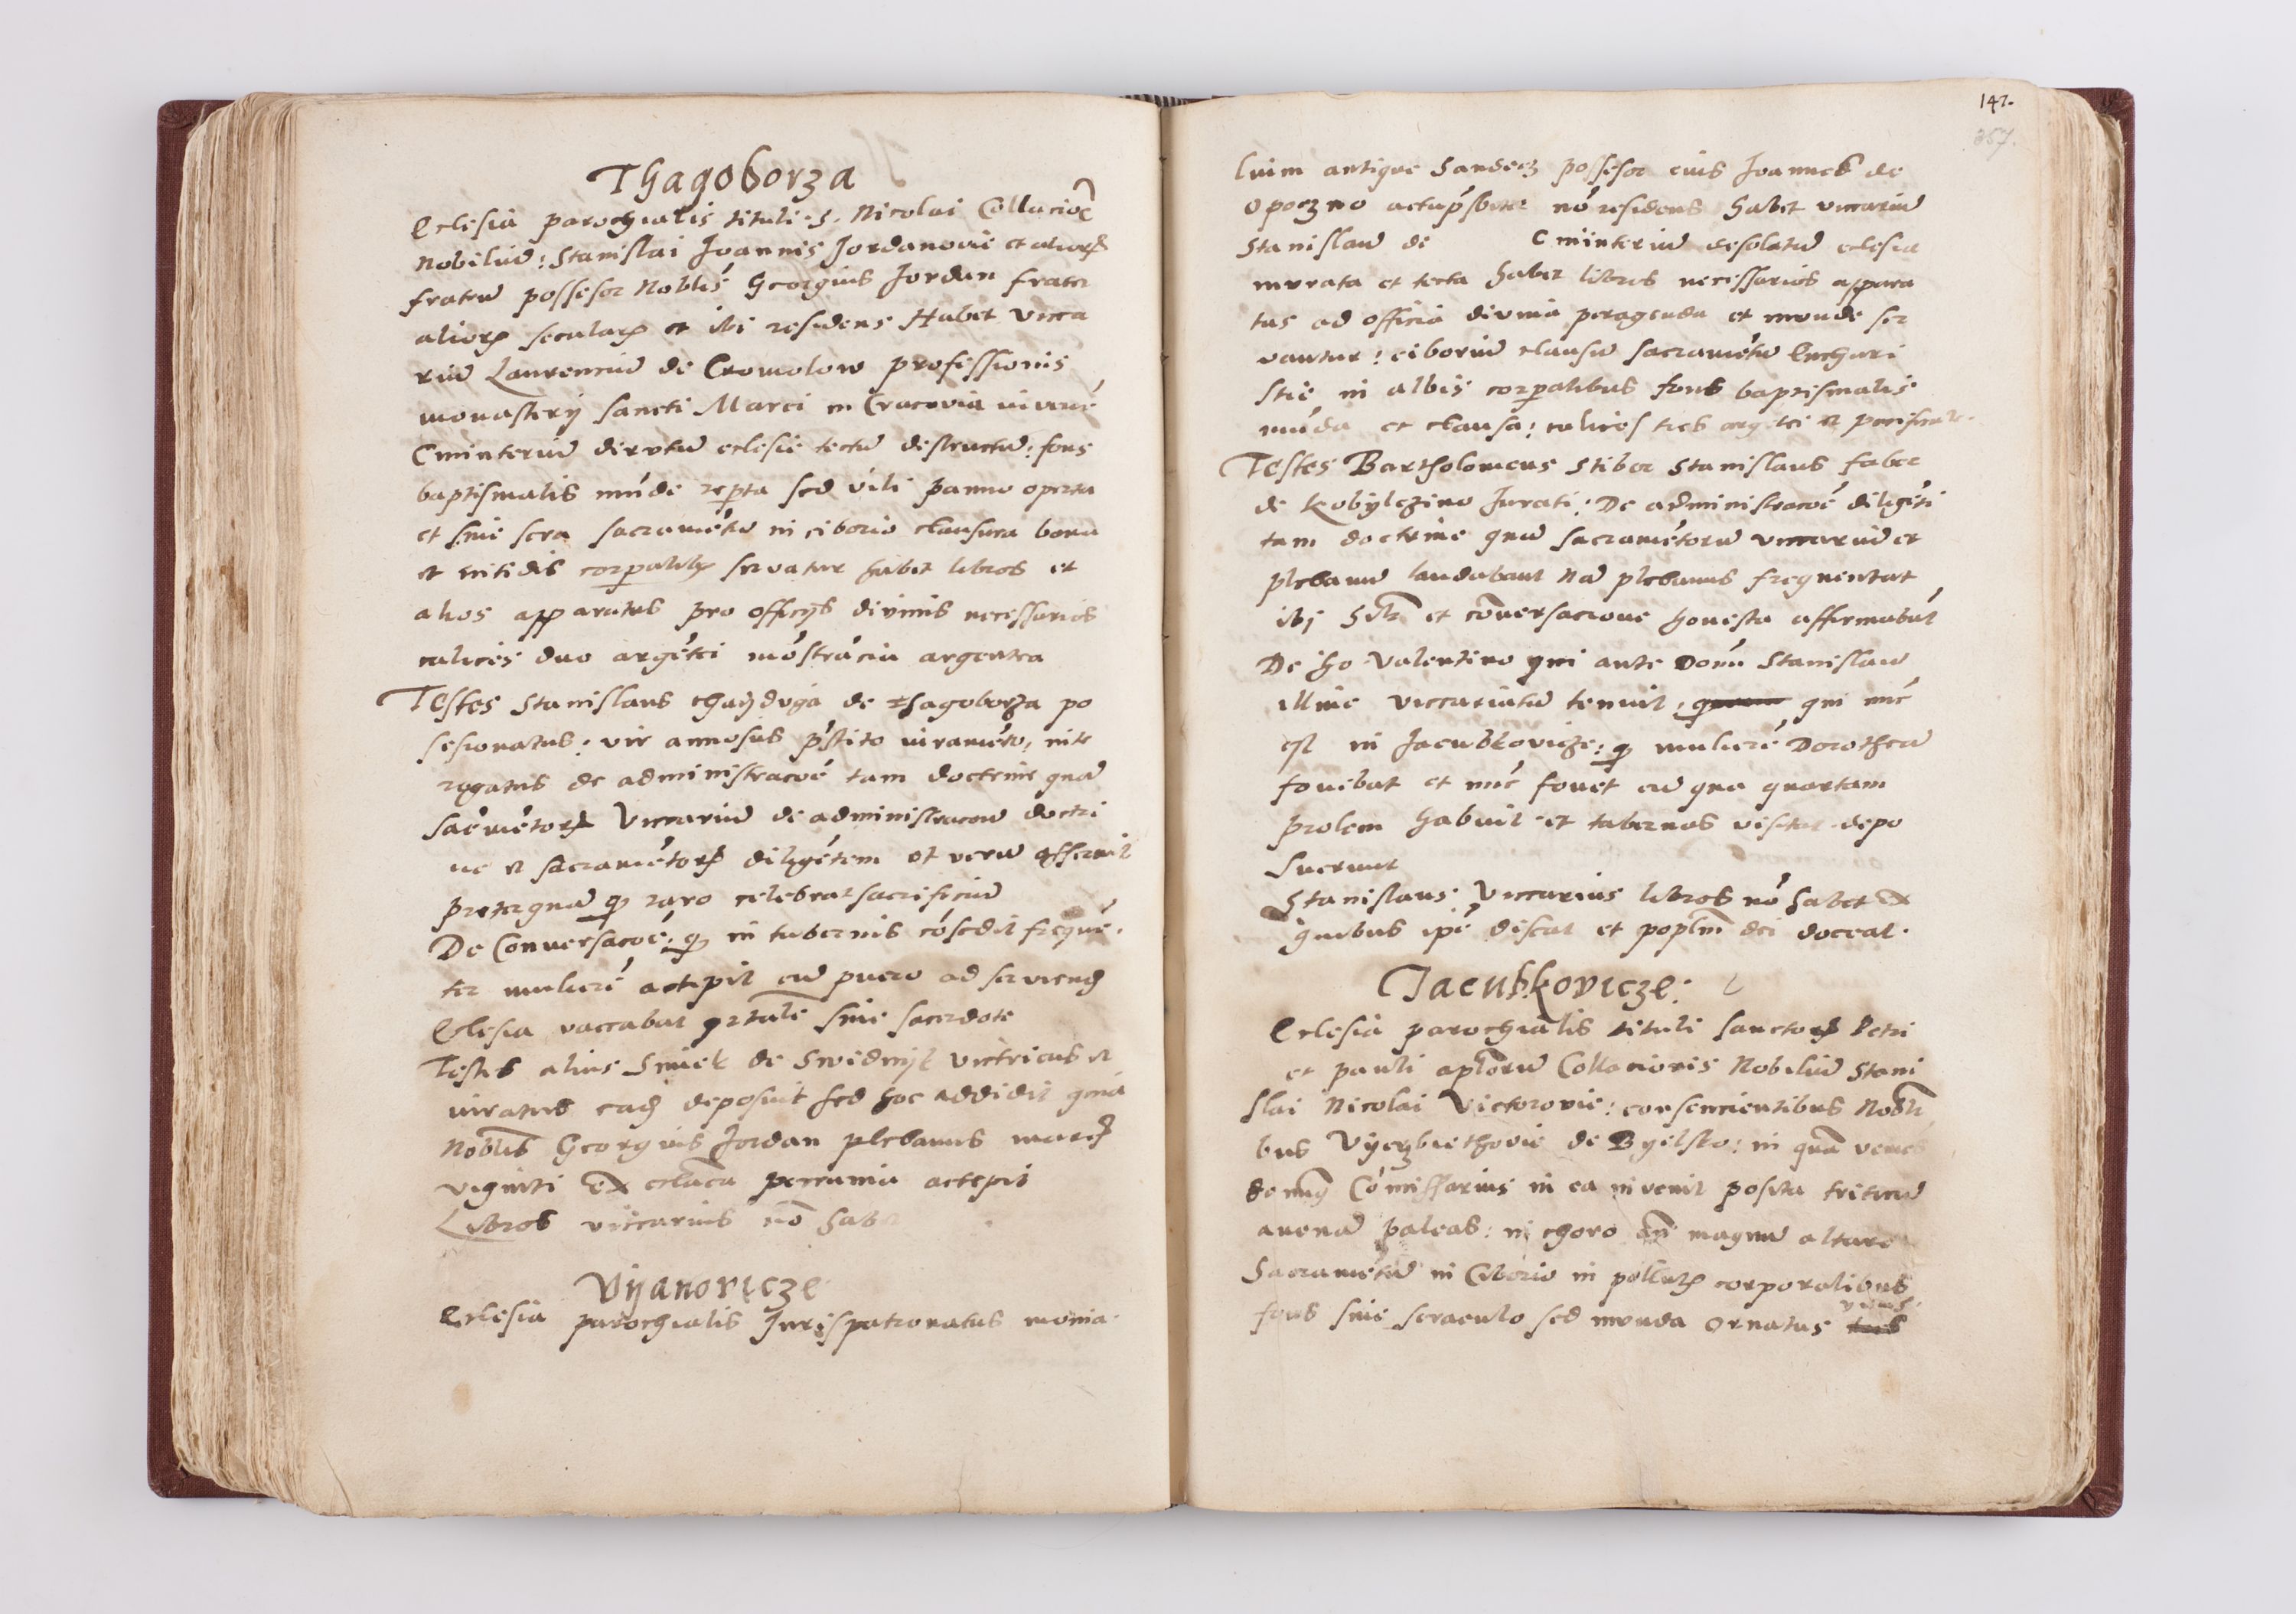 Thagoborza
Eclesia parochialis tituli S. Nicolai Collacioē
Nobiliū: Stanislai Joannis Jordanovie et aliorꝝ
fratrū possesor Noblis Georgius Jordan frater
aliorꝝ secularꝝ et ibi residens Habet vicca
riū Laurenciū de Cromolow professionis
monasterij sancti Marci in Cracovia
Cminteriū dirutū eclesie tectū destructū: fons
baptismalis mūde repta sed vili panno operta
et sine sera sacramētū in ciborio clausura bona
et nitidis corpalibꝫ servatur habet libros et
alios apparatus pro officijs divinis necessarios
calices duo argētei mōstrācia argentea
Testes Stanislaus de Thagoborza po
sesionatus: vir annosus p̄stito iuramēto, inte
rogatus de administracoē tam doctrine quā
sacmētorꝝ Viccariū de administracou doctri
ne et sacramētorꝝ diligētem ut verū asseruit
preterquā ꝙ raro celebrat sacrificiū
De Conversacoe: ꝙ in tabernis cōsedit frequē
ter mulierē accepit cū puero ad serviend
Eclesia vaccabat sine sacerdote
Testis alius Smiek de Swidnyk vitricus et
iuratus eadē deposuit sed hoc addidit quia
Noblis Georgius Jordan plebanus marcꝝ
viginti ex peccunia accepit
Libros viccarius nō habet
Vyanovicze
Eclesia parochialis Jurispatronatus monia-
147.
357.
lium antique Sandecz possesor eius Joannes de
Opoczno nō residens habet viccariū
Stanislaū de Cminteriū desolatū eclesia
murata et tecta habet libros necessarios appara
tus ad officia divina peragenda et munde ser
vantur: ciboriū clausū sacramētū Euchari
stie in albis corpalibus fons baptismalis
mūda et clausa: calices tres argētei
Testes Bartholomeus Stiber Stanislaus faber
de Kobylezino Jurati: De administracoē diligēti
tam doctrine quā sacramētorū viccariū et
plebanū laudabant Nā plebanus frequentat
ibj et cōversacione honesta affirmabāt
De ho Valentino qui ante Domū Stanislaū
illine viccariatū tenuit, qui nūc
est in Jacubkovicze: ꝙ mulierē Dorotheā
fovibat et nūc fovet cū qua quartam
prolem habuit et tabernas visitat depo
suerunt
Stanislaus Viccarius libros nō habet ex
quibus ipē discat et poplm̄ dei doceat.
Jacubkovicze:
Eclesia parochialis tituli sanctorꝝ Petri
et pauli aplōrū Collacionis Nobiliū Stani
slai Nicolai Victorovie: consencientibus Nobli
bus Vyerzbiethovie de Byelsko: in quā
Cōmissarius in ea invenit posita triticū
avenā paleas: in choro an̄ magnū altare
Sacramētū in Ciborio in pollutꝭ corporalibus
fons sine seraculo sed munda ornatus unus